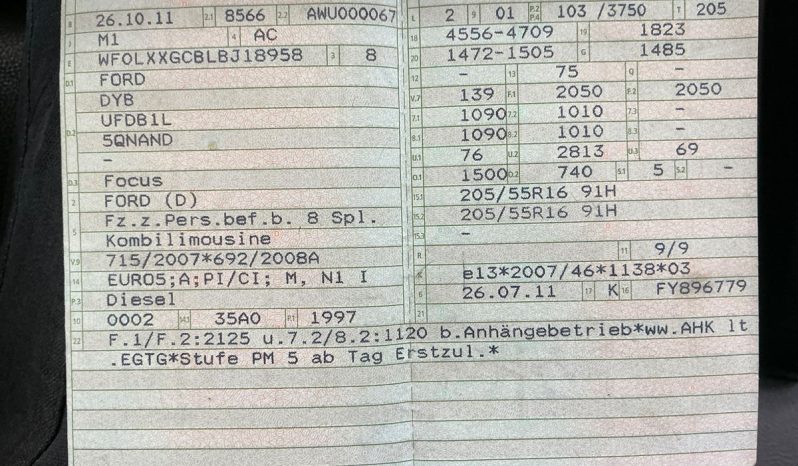 B 26.10.11 2.1 8566 2.2 AWU000067
J M1 4 AC
E WF0LXXGCBLBJ18958 3 8
D.1 FORD
DYB
D.2 UFDB1L
5QNAND
-
D.3 Focus
2 FORD (D)
5 Fz.z.Pers.bef.b. 8 Spl.
Kombilimousine
V.9 715/2007*692/2008A
14 EURO5;A;PI/CI; M, N1 I
P.3 Diesel
10 0002 14.1 35A0 P.1 1997
L 2 9 01 P.2 P.4 103 /3750 T 205
18 4556-4709 19 1823
20 1472-1505 G 1485
12 - 13 75 Q -
V.7 139 F.1 2050 F.2 2050
7.1 1090 7.2 1010 7.3 -
8.1 1090 8.2 1010 8.3 -
U.1 76 U.2 2813 U.3 69
O.1 1500 O.2 740 S.1 5 S.2 -
15.1 205/55R16 91H
15.2 205/55R16 91H
15.3 -
R 11 9/9
K e13*2007/46*1138*03
6 26.07.11 17 K 16 FY896779
21
22 F.1/F.2:2125 u.7.2/8.2:1120 b.Anhängebetrieb*ww.AHK lt
.EGTG*Stufe PM 5 ab Tag Erstzul.*